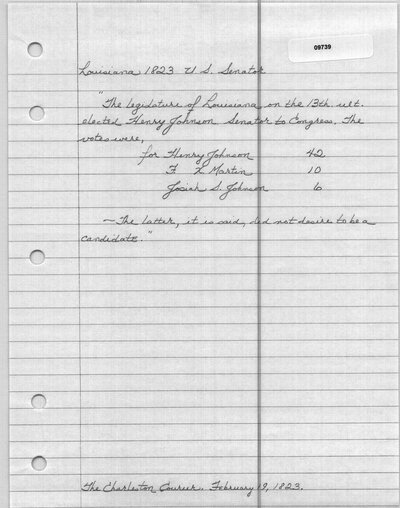 09739
Louisiana 1823 U.S. Senator
"The legislature of Louisiana on the 13th. ult.
elected Henry Johnson Senator to Congress. The
votes were,
for Henry Johnson 42
F X Martin 10
Josiah S. Johnson 6
— The latter, it is said, did not desire to be a
candidate."
The Charleston Courier. February 19, 1823.